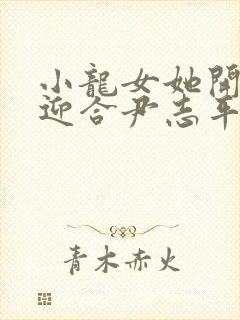 小龍女她開
迎合尹志平
青木赤火